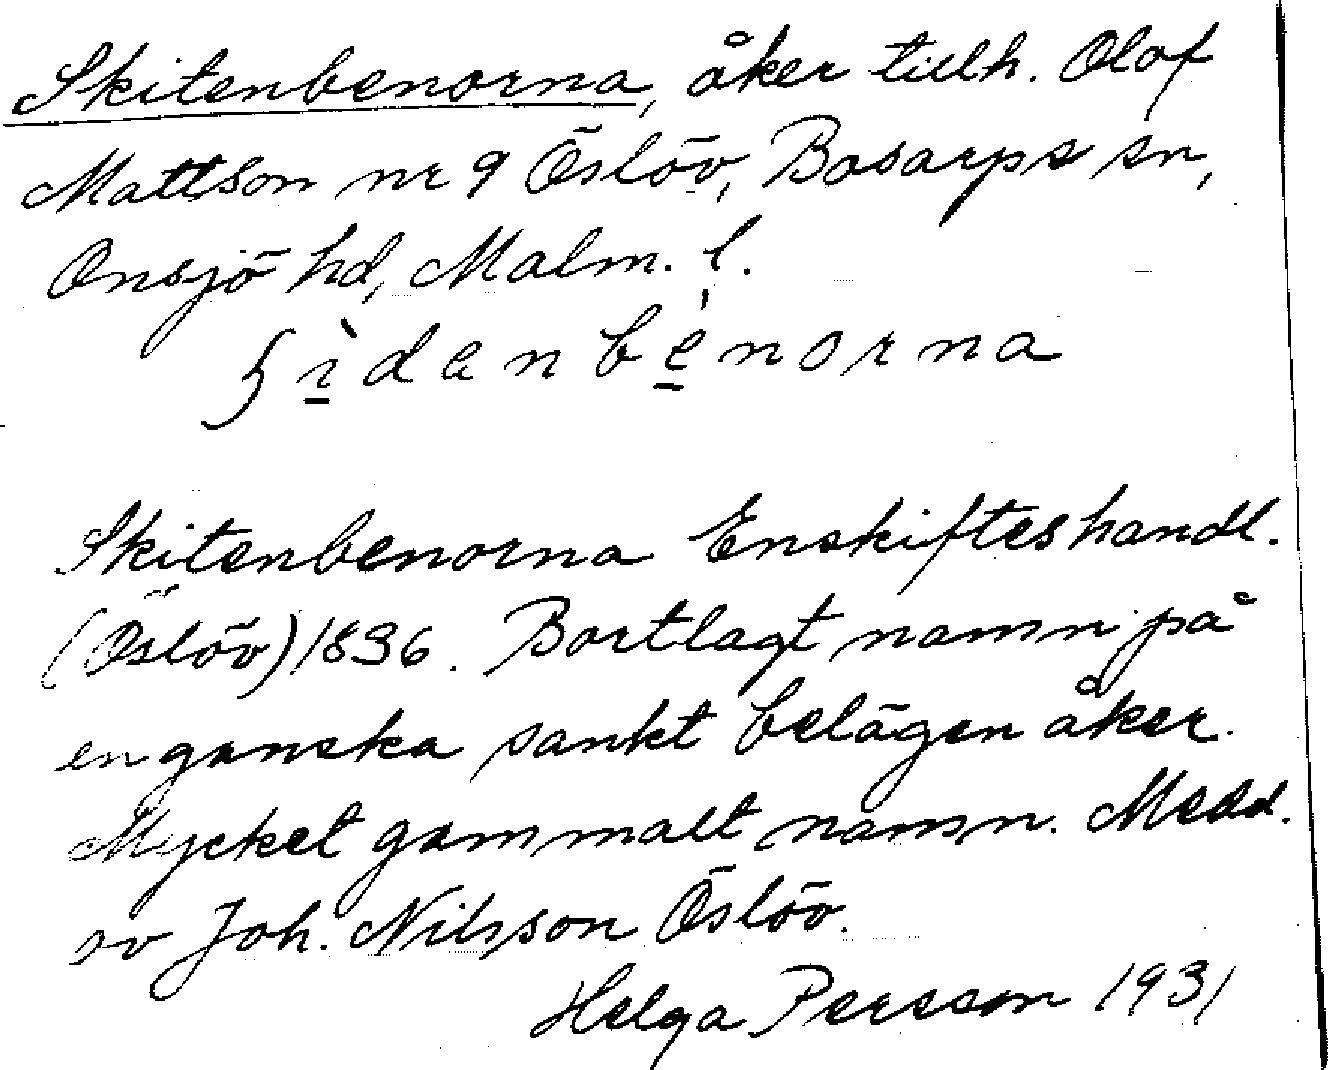 Skitenbenorna, åker tillh. Olof
Mattson nr 9 Öslöv, Bosarps sn,
Onsjö hd, Malm. l.
ʃìdenbénorna
Skitenbenorna Enskifteshandl.
(Öslöv) 1836. Bortlagt namn på
en ganska sankt belägen åker.
Mycket gammalt namn. Medd.
av Joh. Nilsson Öslöv.
Helga Persson 1931